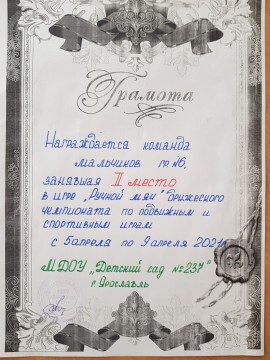 Грамота
Награждается команда
мальчиков гр №6,
занявшая II место
в игре „Ручной мяч" Дружеского
чемпионата по подвижным и
спортивным играм
с 5 апреля по 9 апреля 2021г.
МДОУ „Детский сад №237"
г. Ярославль